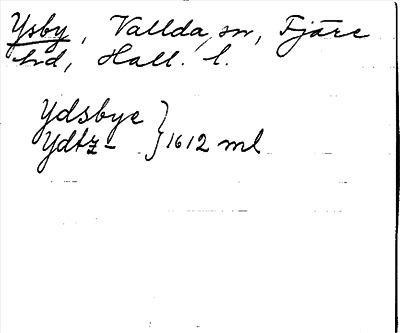 Ysby, Vallda sn, Fjäre
hd, Hall. l.
Ydsbye
Ydtz- } 1612 ml